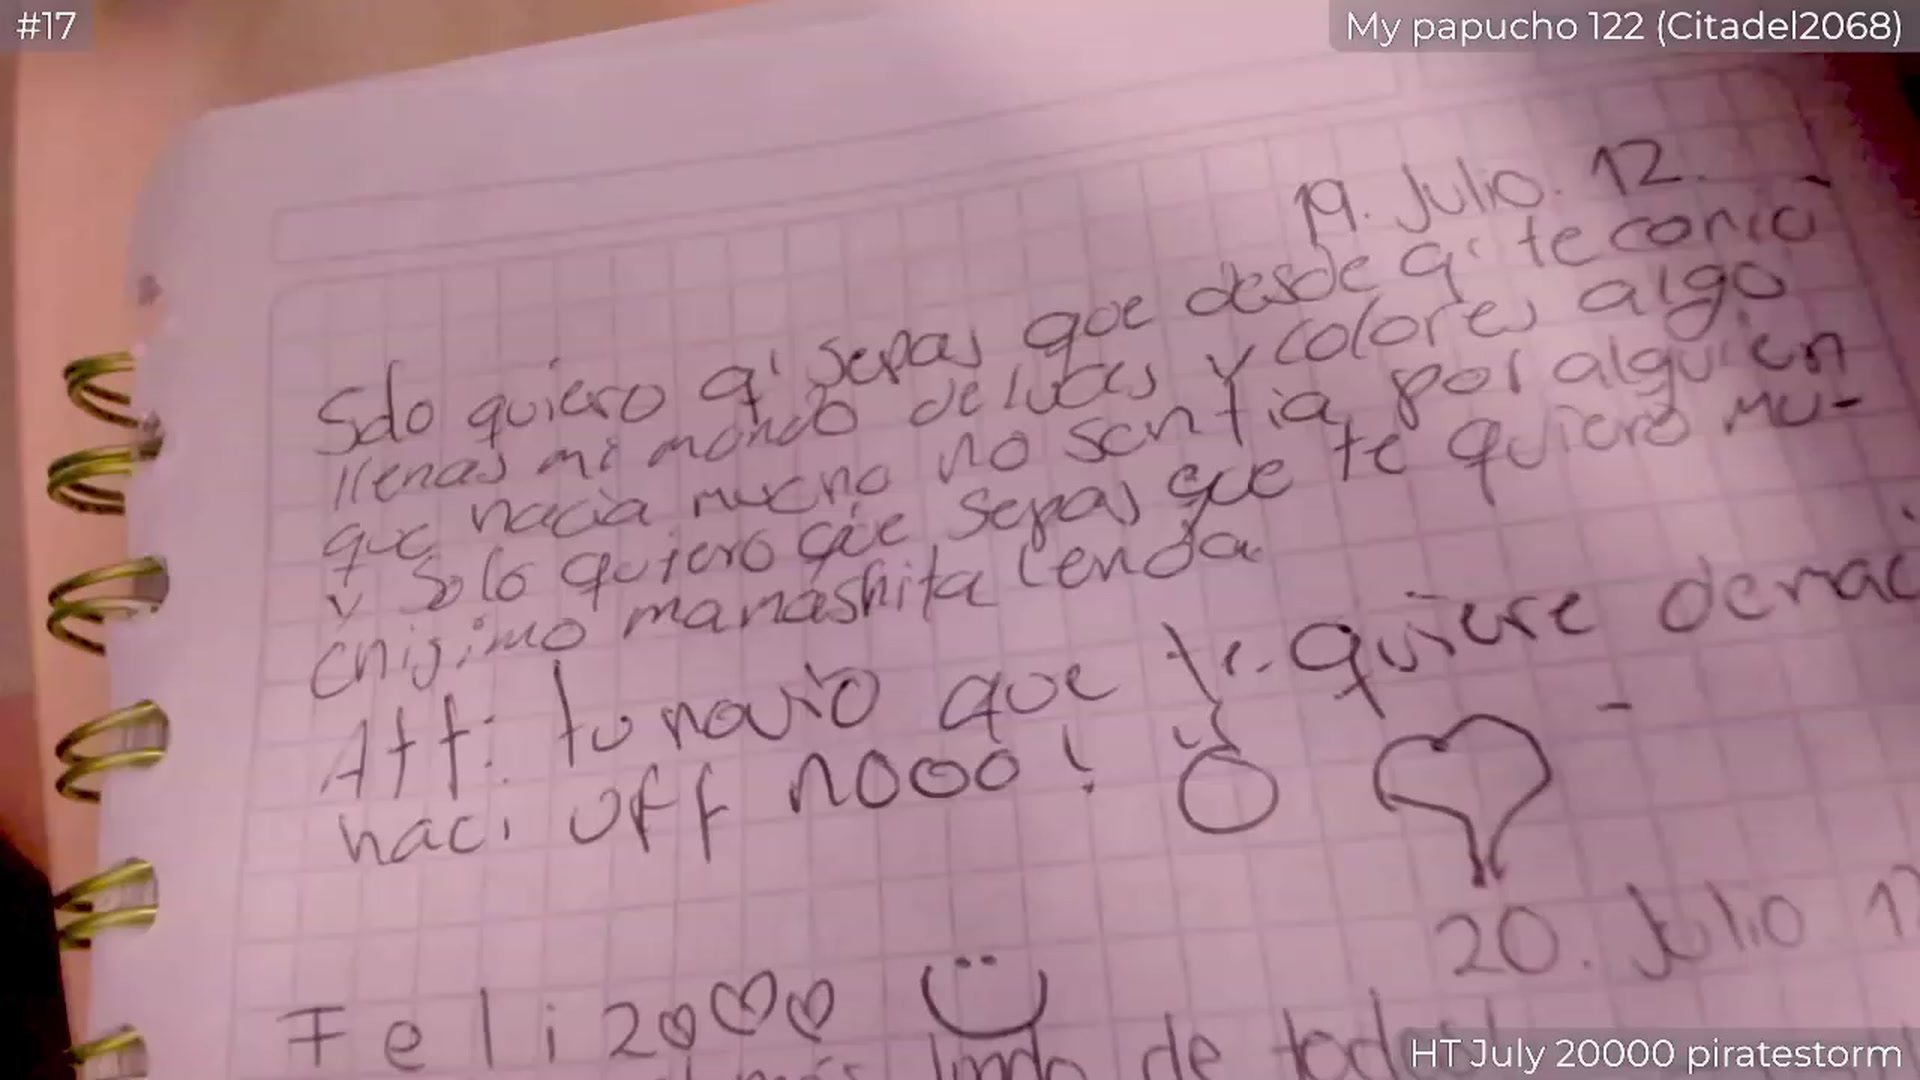 #17
My papucho 122 (Citadel2068)
19. Julio. 12.
Solo quiero q' sepas que desde q' te conici
llenas mi mundo de luces y colores algo
que hacia mucho no sentia por alguien
y solo quiero que sepas que te quiero mu-
chisimo manashita lenda
Att: tu novio que te quiere demaci
haci uff nooo!
20. Julio 12
Feli20
más lindo de todos
HT July 20000 piratestorm